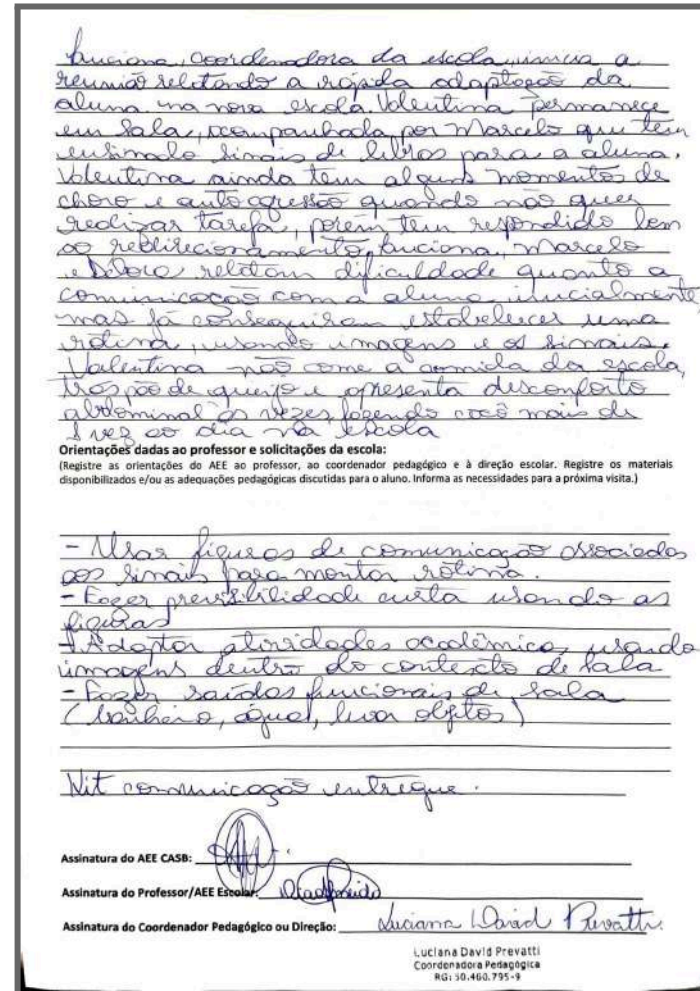 Luciana, coordenadora da escola, inicia a
reunião relatando a rápida adaptação da
aluna na nova escola. Valentina permanece
em sala, acompanhada por Marcelo que tem
ensinado sinais de libras para a aluna.
Valentina ainda tem alguns momentos de
choro e autoagressão quando não quer
realizar tarefa, porém tem respondido bem
ao redirecionamento. Luciana, Marcelo
e Débora relatam dificuldade quanto a
comunicação com a aluna inicialmente,
mas já conseguiram estabelecer uma
rotina, usando imagens e os sinais.
Valentina não come a comida da escola,
tras pão de queijo e apresenta desconforto
abdominal as vezes, fazendo cocô mais de
1 vez ao dia na escola
Orientações dadas ao professor e solicitações da escola:
(Registre as orientações do AEE ao professor, ao coordenador pedagógico e à direção escolar. Registre os materiais
disponibilizados e/ou as adequações pedagógicas discutidas para o aluno. Informa as necessidades para a próxima visita.)
- Usar figuras de comunicação associadas
aos sinais para montar rotina.
- Fazer previsibilidade curta usando as
figuras
- Adaptar atividades acadêmicas, usando
imagens dentro do contexto de sala
- Fazer saídas funcionais de sala
(banheiro, água, levar objetos)
Kit comunicação entregue.
Assinatura do AEE CASB:
Assinatura do Professor/AEE Escolar:
Assinatura do Coordenador Pedagógico ou Direção: Luciana David Prevatti
Luciana David Prevatti
Coordenadora Pedagógica
RG: 50.460.795-9